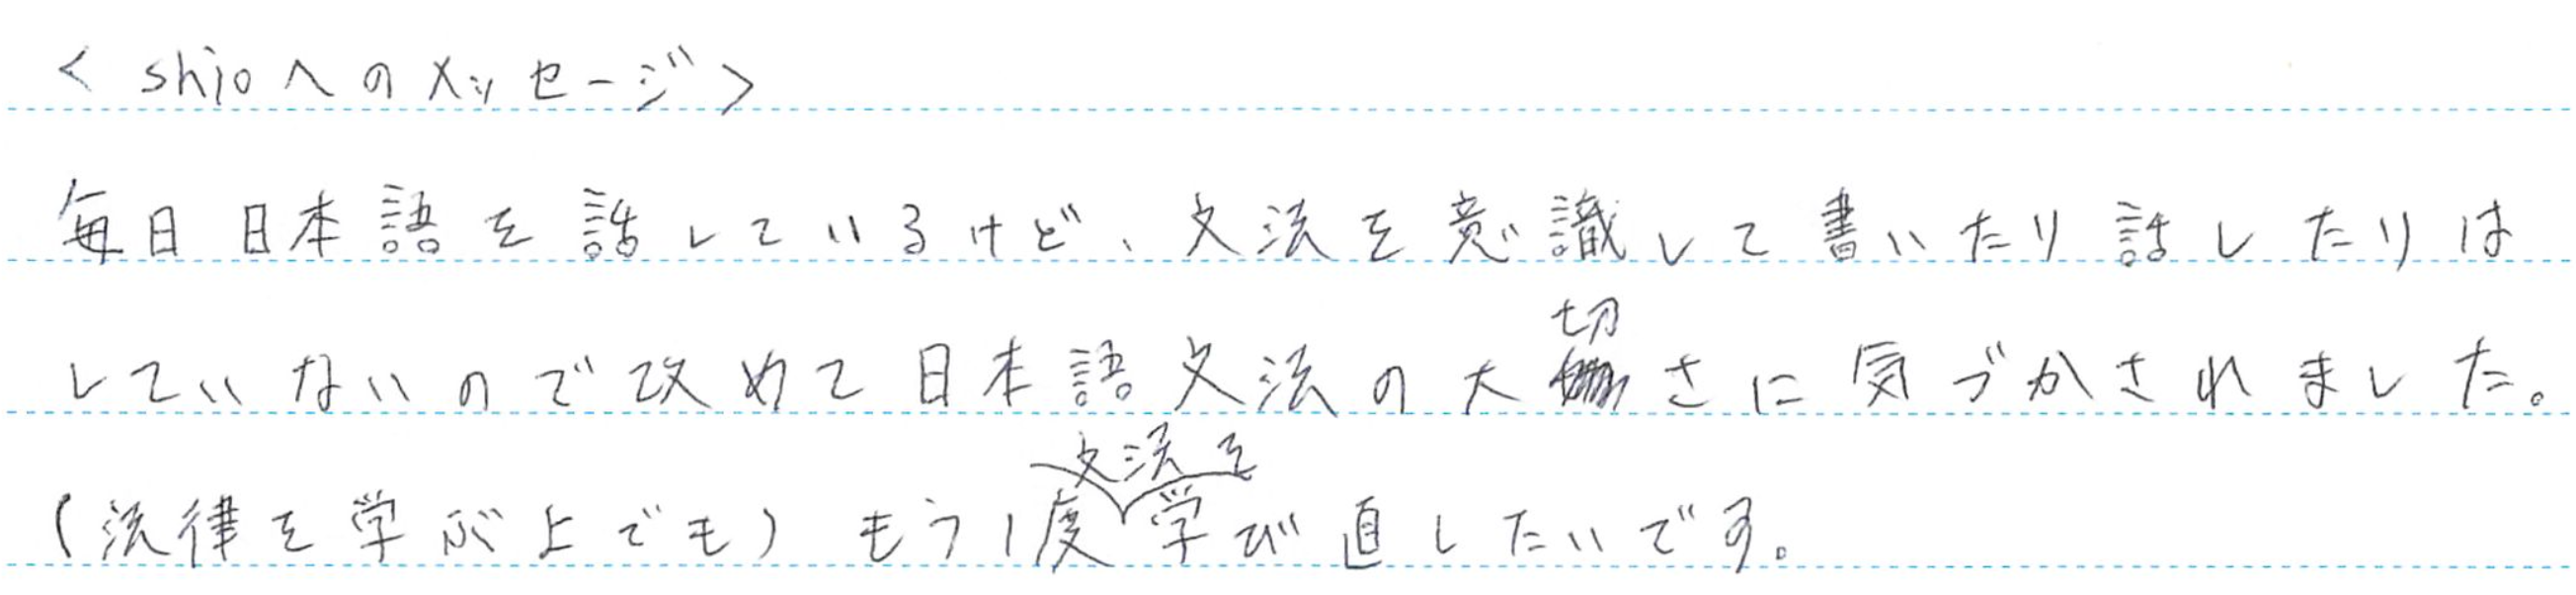 < shioへのメッセージ>
毎日日本語を話しているけど、文法を意識して書いたり話したりは
していないので改めて日本語文法の大切さに気づかされました。
(法律を学ぶ上でも) もう1度文法を学び直したいです。